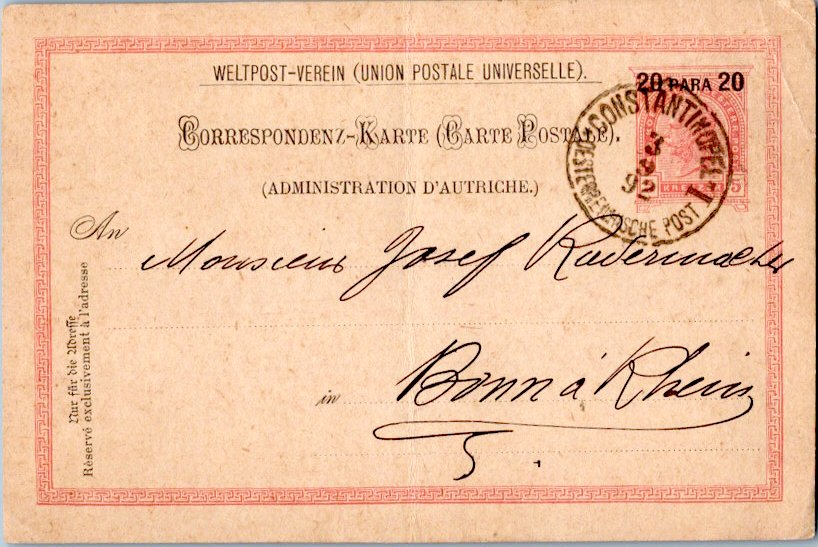 WELTPOST-VEREIN (UNION POSTALE UNIVERSELLE).
20 PARA 20
CORRESPONDENZ-KARTE (CARTE POSTALE).
(ADMINISTRATION D'AUTRICHE.)
KREUZER 5
CONSTANTINOPEL I
OESTERREICHISCHE POST
3
92
An
Monsieur Josef Radermacher
in
Bonn á Rhein
Nur für die Adresse
Réservé exclusivement à l'adresse